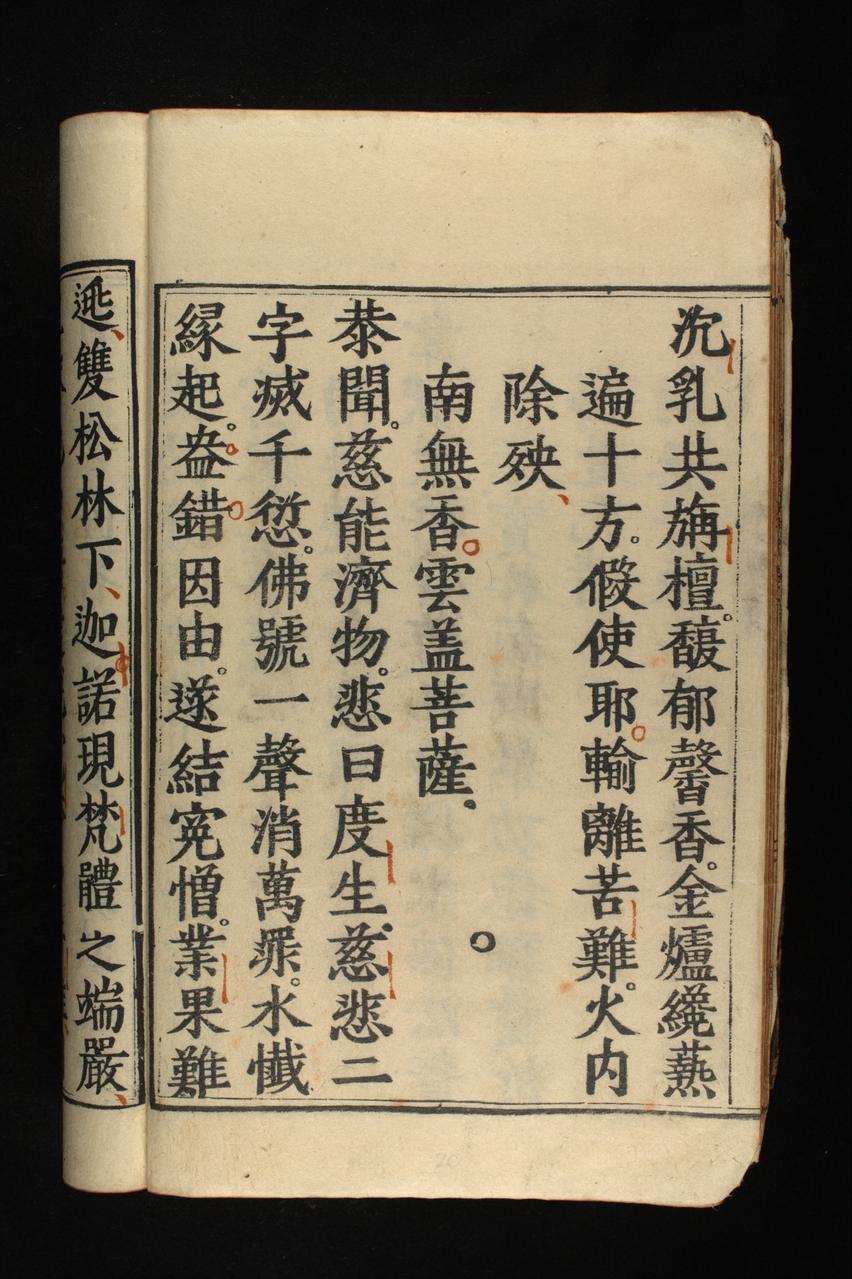 沉乳共旃檀。馥郁馨香。金爐纔爇
遍十方。假使耶輸離苦難。火内
除殃、
南無香雲盖菩薩。
恭聞。慈能濟物。悲曰度生。慈悲二
字滅千愆。佛號一聲消萬罪。水懺
緣起。盎錯因由。遂結寃憎。業果難
逃、雙松林下、迦諾現梵體之端嚴、